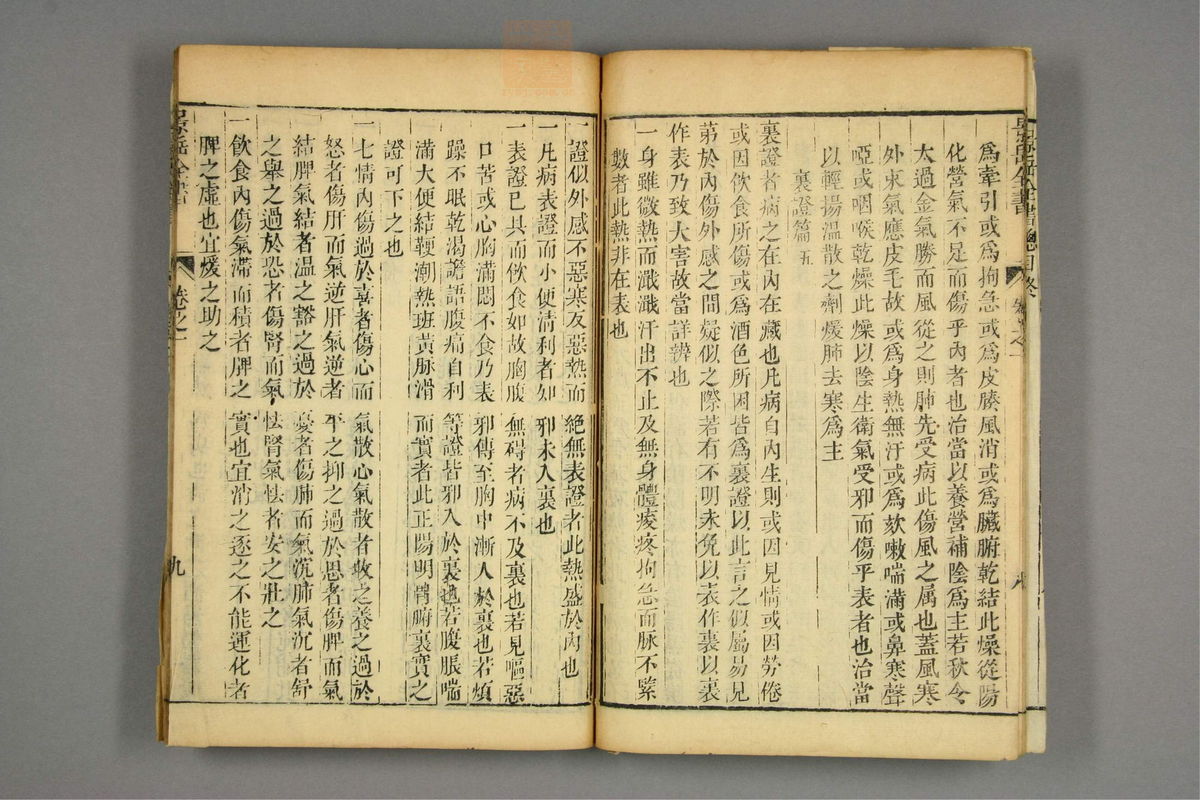 為牽引或為拘急或為皮膚風消或為臟腑乾結此燥從陽
化營氣不足而傷乎內者也治當以養營補陰為主若秋令
太過金氣勝而風從之則肺先受病此傷風之屬也蓋風寒
外束氣應皮毛故或為身熱無汗或為欬嗽喘滿或鼻寒聲
啞或咽喉乾燥此燥以陰生衛氣受邪而傷乎表者也治當
以輕揚温散之劑煖肺去寒為主
裏證篇 五
裏證者病之在內在藏也凡病自內生則或因見情或因勞倦
或因飲食所傷或為酒色所困皆為裏證以此言之似屬易見
第於內傷外感之間疑似之際若有不明未免以表作裏以裏
作表乃致大害故當詳辨也
一身雖微熱而濈濈汗出不止及無身體痠疼拘急而脉不緊
數者此熱非在表也
景岳全書 卷之一 八
一證似外感不惡寒反惡熱而絕無表證者此熱盛於內也
一凡病表證而小便清利者知邪未入裏也
一表證已具而飲食如故胸腹無碍者病不及裏也若見嘔惡
口苦或心胸滿悶不食乃表邪傳至胸中漸入於裏也若煩
躁不眠乾渴譫語腹痛自利等證皆邪入於裏也若腹脹喘
滿大便結鞕潮熱班黃脉滑而實者此正陽明胃腑裏實之
證可下之也
一七情內傷過於喜者傷心而氣散心氣散者收之養之過於
怒者傷肝而氣逆肝氣逆者平之抑之過於思者傷脾而氣
結脾氣結者温之豁之過於憂者傷肺而氣沉肺氣沉者舒
之舉之過於恐者傷腎而氣怯腎氣怯者安之壯之
一飲食內傷氣滯而積者脾之實也宜消之逐之不能運化者
脾之虛也宜煖之助之
景岳全書 卷之一 九